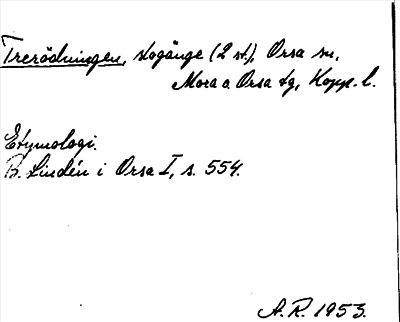 Trerödningen, skogänge (2 st.), Orsa sn,
Mora o Orsa tg, Kopp. l.
Etymologi.
B. Lindén i Orsa I, s. 554.
A. R. 1953.